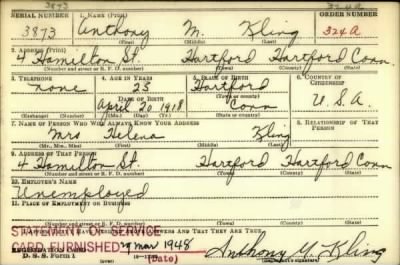 3873 324a
SERIAL NUMBER 1. NAME (Print) ORDER NUMBER
3873 Anthony M. Kling 324A
(First) (Middle) (Last)
2. ADDRESS (Print)
4 Hamilton St. Hartford Hartford Conn.
(Number and street or R. F. D. number) (Town) (County) (State)
3. TELEPHONE 4. AGE IN YEARS 5. PLACE OF BIRTH 6. COUNTRY OF CITIZENSHIP
none 23 Hartford
DATE OF BIRTH (Town or county)
April 20 1918 Conn U.S.A.
(Exchange) (Number) (Mo.) (Day) (Yr.) (State or country)
7. NAME OF PERSON WHO WILL ALWAYS KNOW YOUR ADDRESS 8. RELATIONSHIP OF THAT PERSON
Mrs Helena Kling
(Mr., Mrs., Miss) (First) (Middle) (Last)
9. ADDRESS OF THAT PERSON
4 Hamilton St. Hartford Hartford Conn
(Number and street or R. F. D. number) (Town) (County) (State)
10. EMPLOYER'S NAME
Unemployed
11. PLACE OF EMPLOYMENT OR BUSINESS
STATEMENT OF SERVICE
ANSWERS AND THAT THEY ARE TRUE.
CARD FURNISHED 9 Mar 1948
REGISTRATION CARD
D. S. S. Form 1 (Date) Anthony M. Kling
(Registrant's signature)